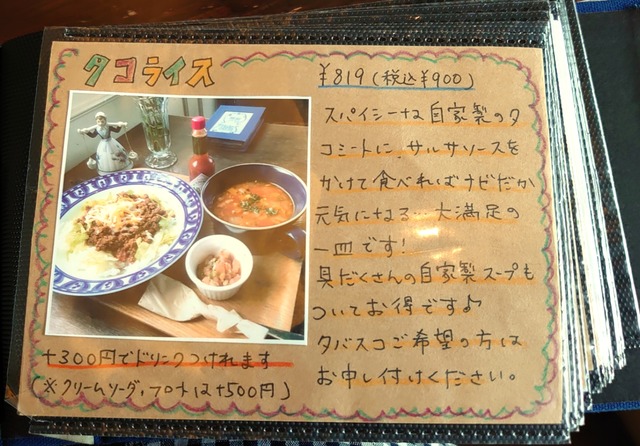 タコライス
¥819(税込¥900)
スパイシーな自家製のタ
コミートに、サルサソースを
かけて食べればナゼだか
元気になる…大満足の
一皿です!
具だくさんの自家製スープも
ついてお得です♪
タバスコご希望の方は
お申し付けください。
+300円でドリンクつけれます
(※クリームソーダ・フロートは+500円)